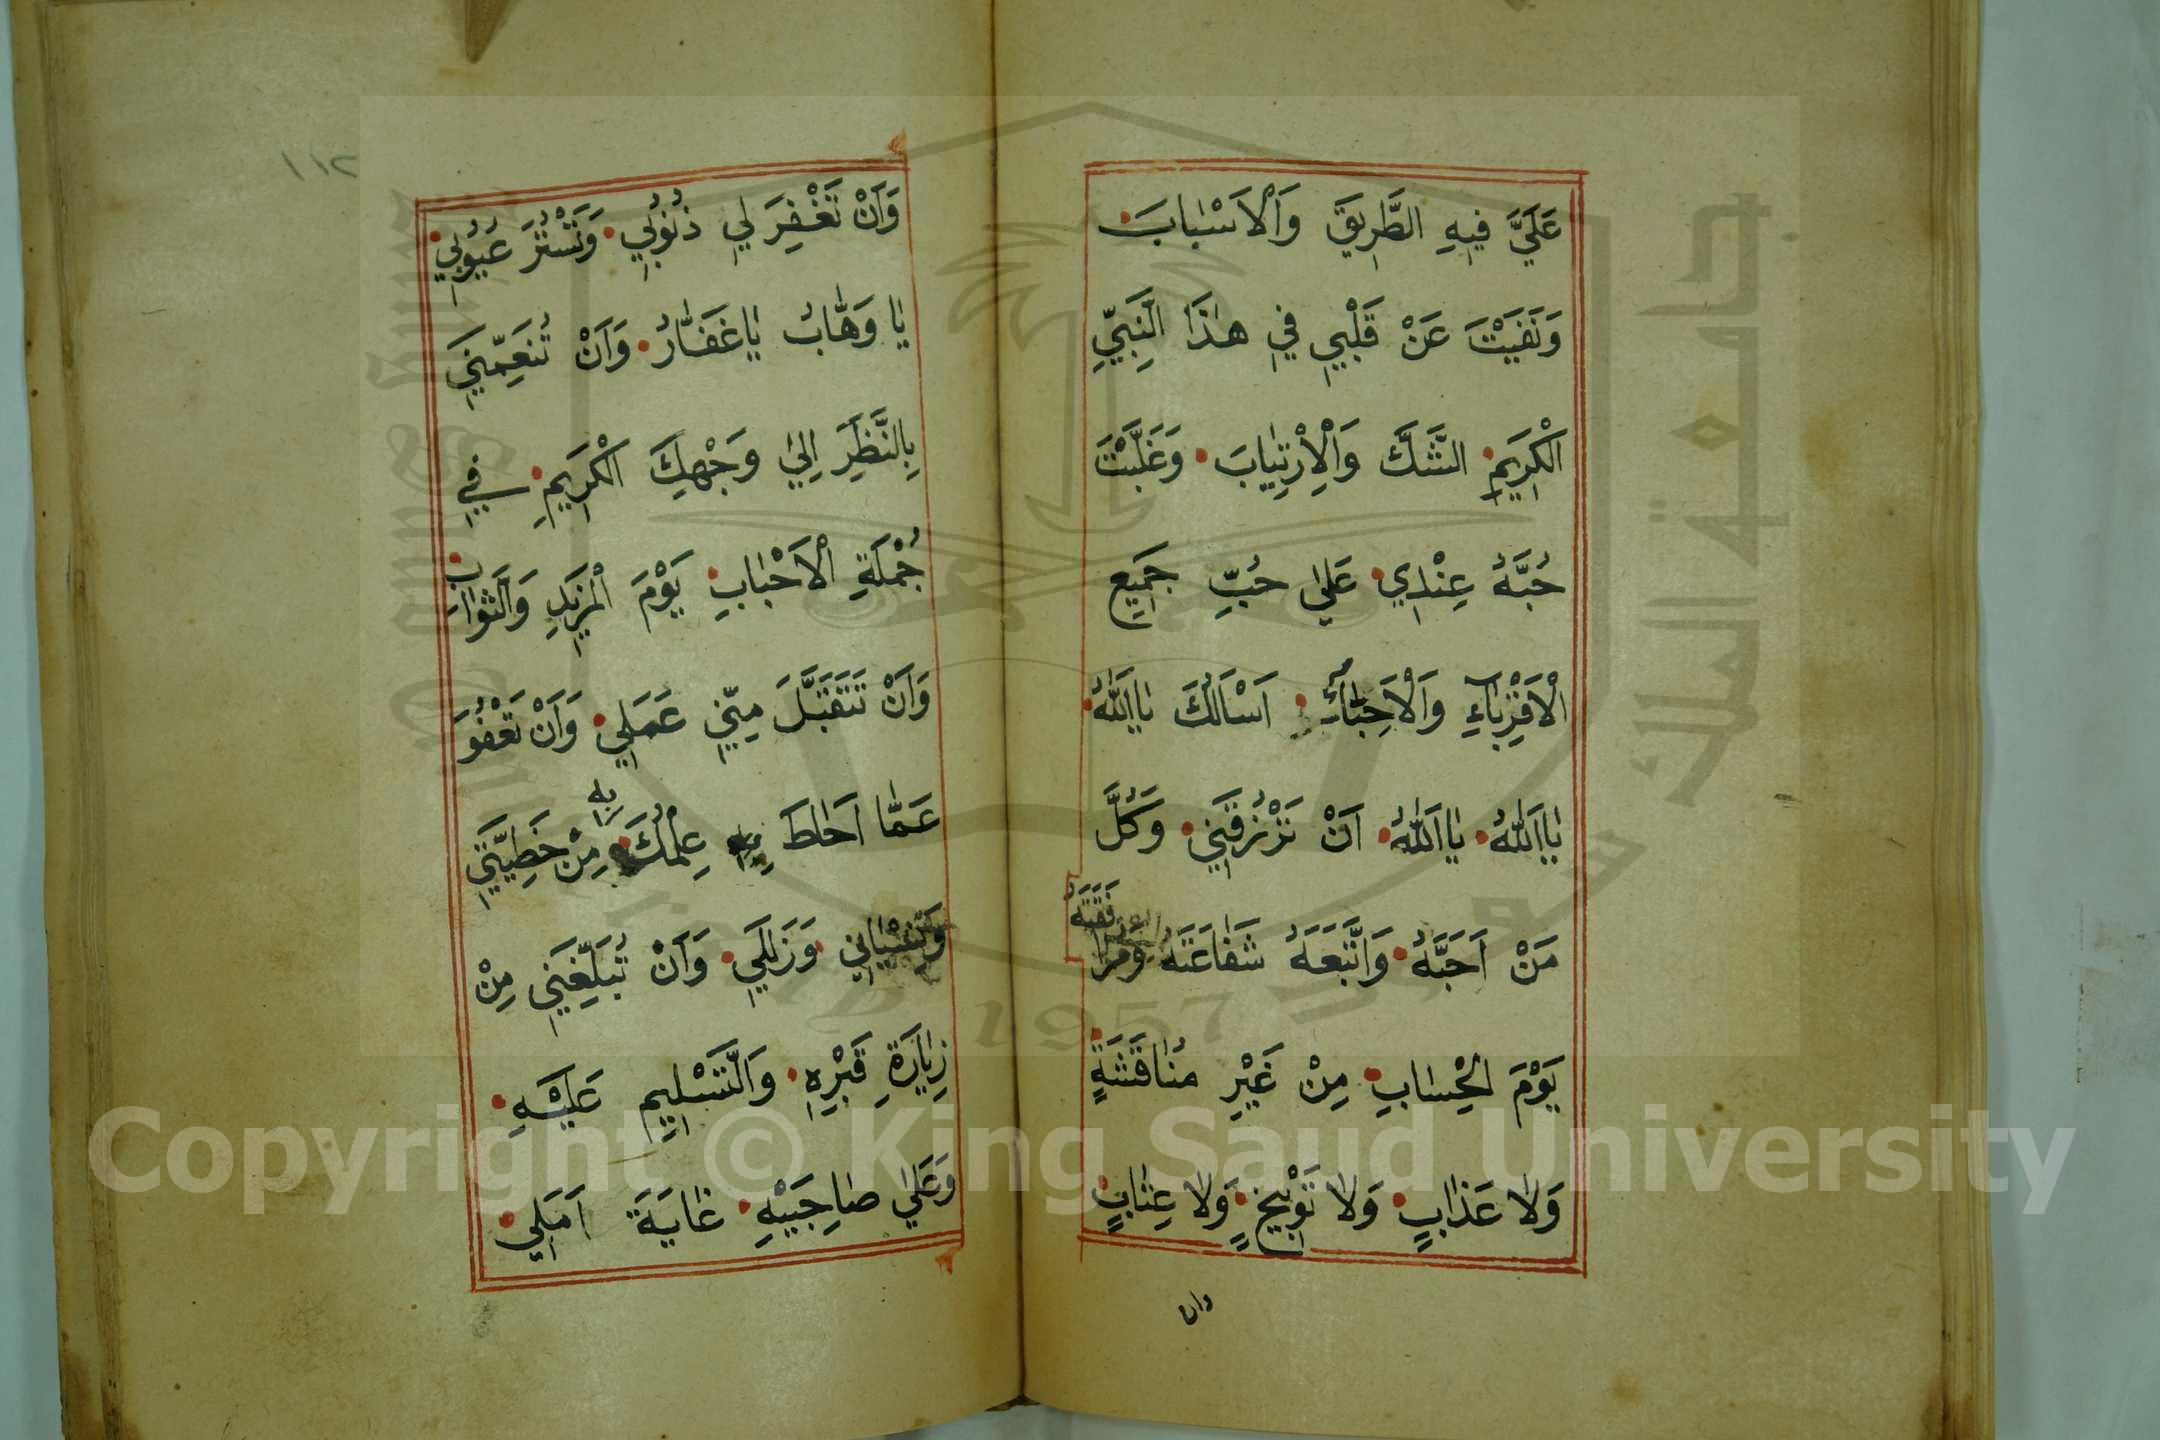 عَلَيَّ فِيهِ الطَّرِيقَ وَالْاَسْبَابَ
وَنَفَيْتَ عَنْ قَلْبِي فِي هٰذَا النَّبِيِّ
الْكَرِيمِ الشَّكَّ وَالْاِرْتِيَابَ وَغَلَّبْتَ
حُبَّهُ عِنْدِي عَلٰي حُبِّ جَمِيعِ
الْاَقْرِبَاءِ وَالْاَحِبَّاءِ اَسْاَلُكَ يَااَللّٰهُ
يَااَللّٰهُ يَااَللّٰهُ اَنْ تَرْزُقَنِي وَكُلَّ
مَنْ اَحَبَّهُ وَاتَّبَعَهُ شَفَاعَتَهُ وَمُرَافَقَتَهُ
يَوْمَ الْحِسَابِ مِنْ غَيْرِ مُنَاقَشَةٍ
وَلَا عَذَابٍ وَلَا تَوْبِيخٍ وَلَا عِتَابٍ
وان
١١٢
وَاَنْ تَغْفِرَ لِي ذُنُوبِي وَتَسْتُرَ عُيُوبِي
يَا وَهَّابُ يَاغَفَّارُ وَاَنْ تُنَعِّمَنِي
بِالنَّظَرِ اِلٰي وَجْهِكَ الْكَرِيمِ فِي
جُمْلَةِ الْاَحْبَابِ يَوْمَ الْمَزِيدِ وَالثَّوَابِ
وَاَنْ تَتَقَبَّلَ مِنِّي عَمَلِي وَاَنْ تَعْفُوَ
عَمَّا اَحَاطَ عِلْمُكَ بِهِ مِنْ خَطِيئَتِي
وَنِسْيَانِي وَزَلَلِي وَاَنْ تُبَلِّغَنِي مِنْ
زِيَارَةِ قَبْرِهِ وَالتَّسْلِيمِ عَلَيْهِ
وَعَلٰي صَاحِبَيْهِ غَايَةَ اَمَلِي
Copyright © King Saud University
جامعة الملك سعود
King Saud University
1957